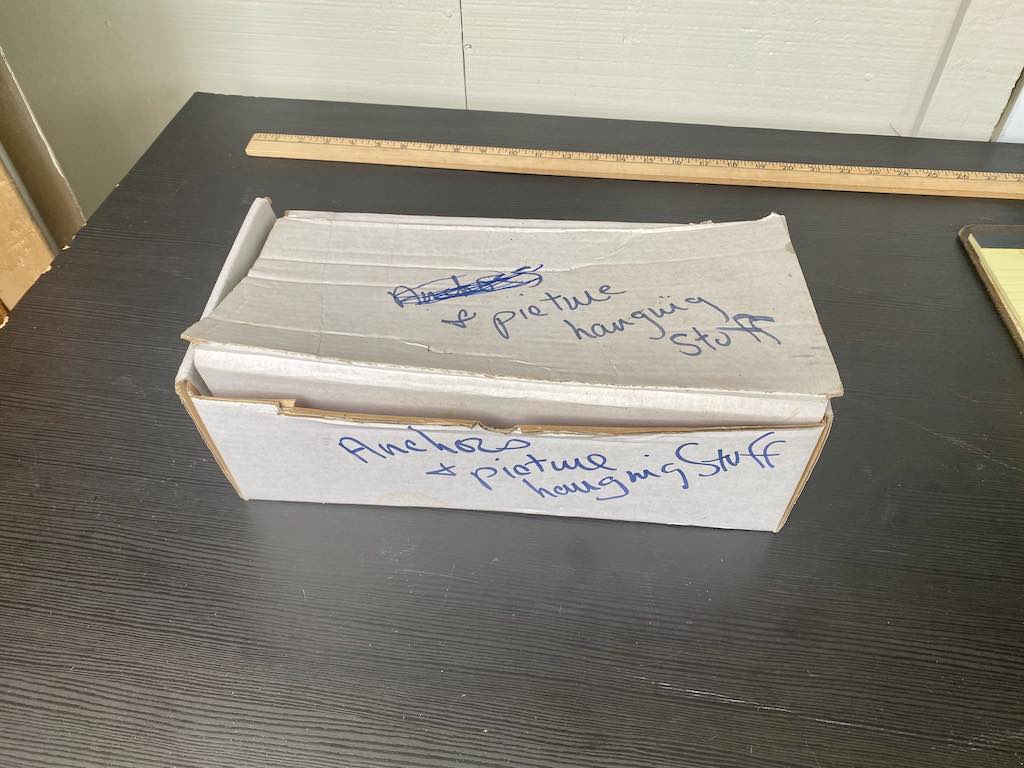 Anchors
& picture
hanging
Stuff
Anchors
& picture
hanging Stuff